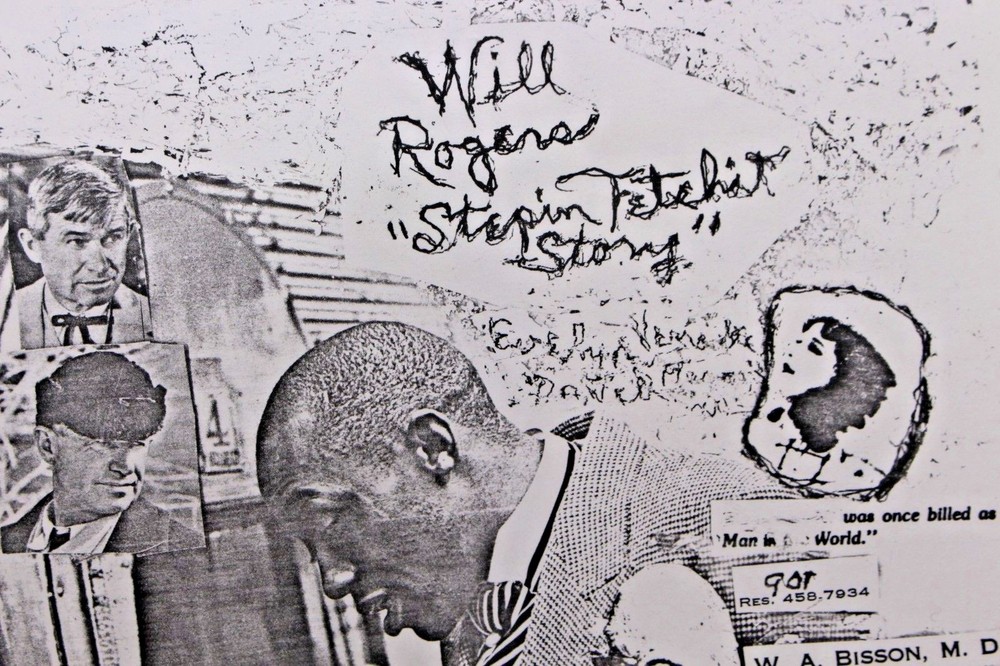 Will
Rogers
"Stepin Fetchit
Story"
was once billed as
Man in World."
got
RES. 458-7934
W. A. BISSON, M. D